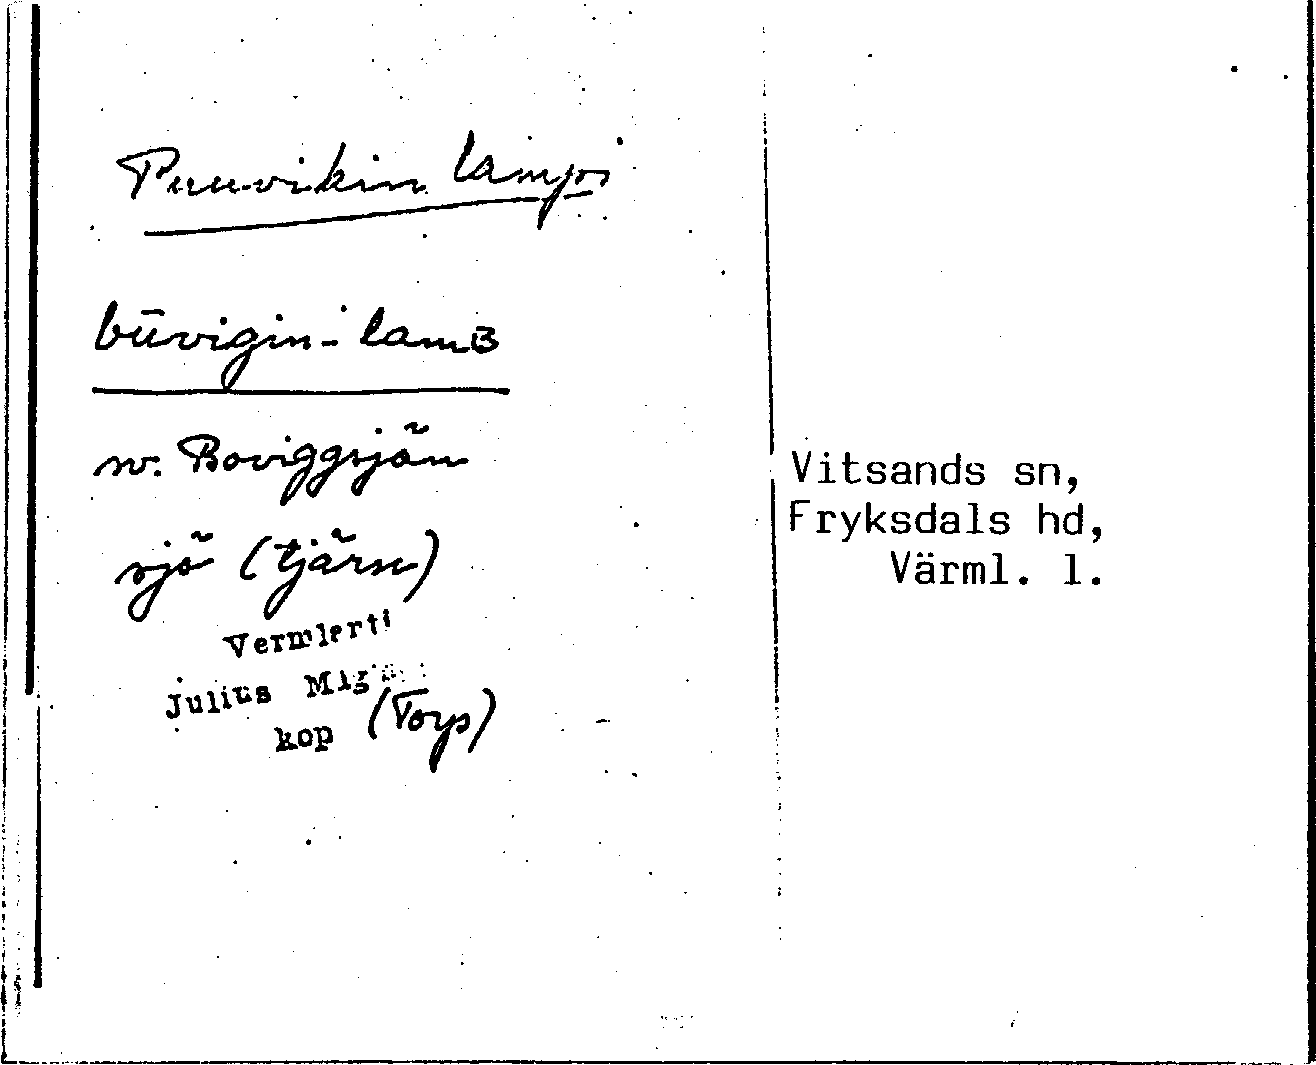 Puuvikin lampi
būvigin-lamB
sv. Boviggsjön
sjö (tjärn)
Vermlerti
Julius
kop (Torp)
Vitsands sn,
Fryksdals hd,
Värml. l.